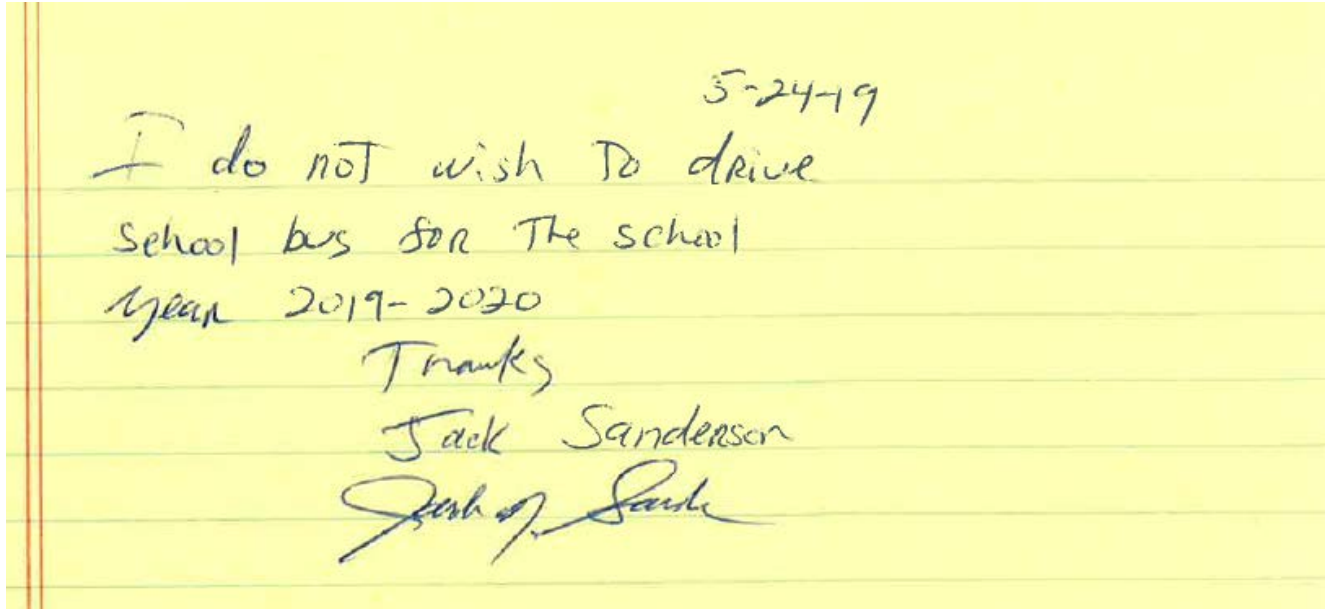 5-24-19
I do not wish To drive
school bus for The school
year 2019-2020
Thanks
Jack Sanderson